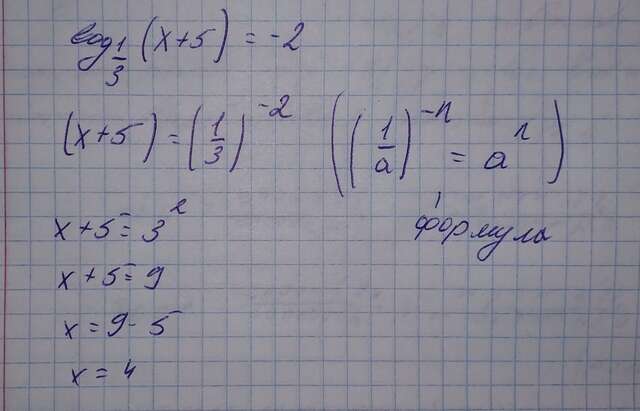 log_{1/3} (x+5) = -2
(x+5) = (1/3)^{-2} ((1/a)^{-n} = a^n)
x+5 = 3^2 формула
x+5 = 9
x = 9 - 5
x = 4